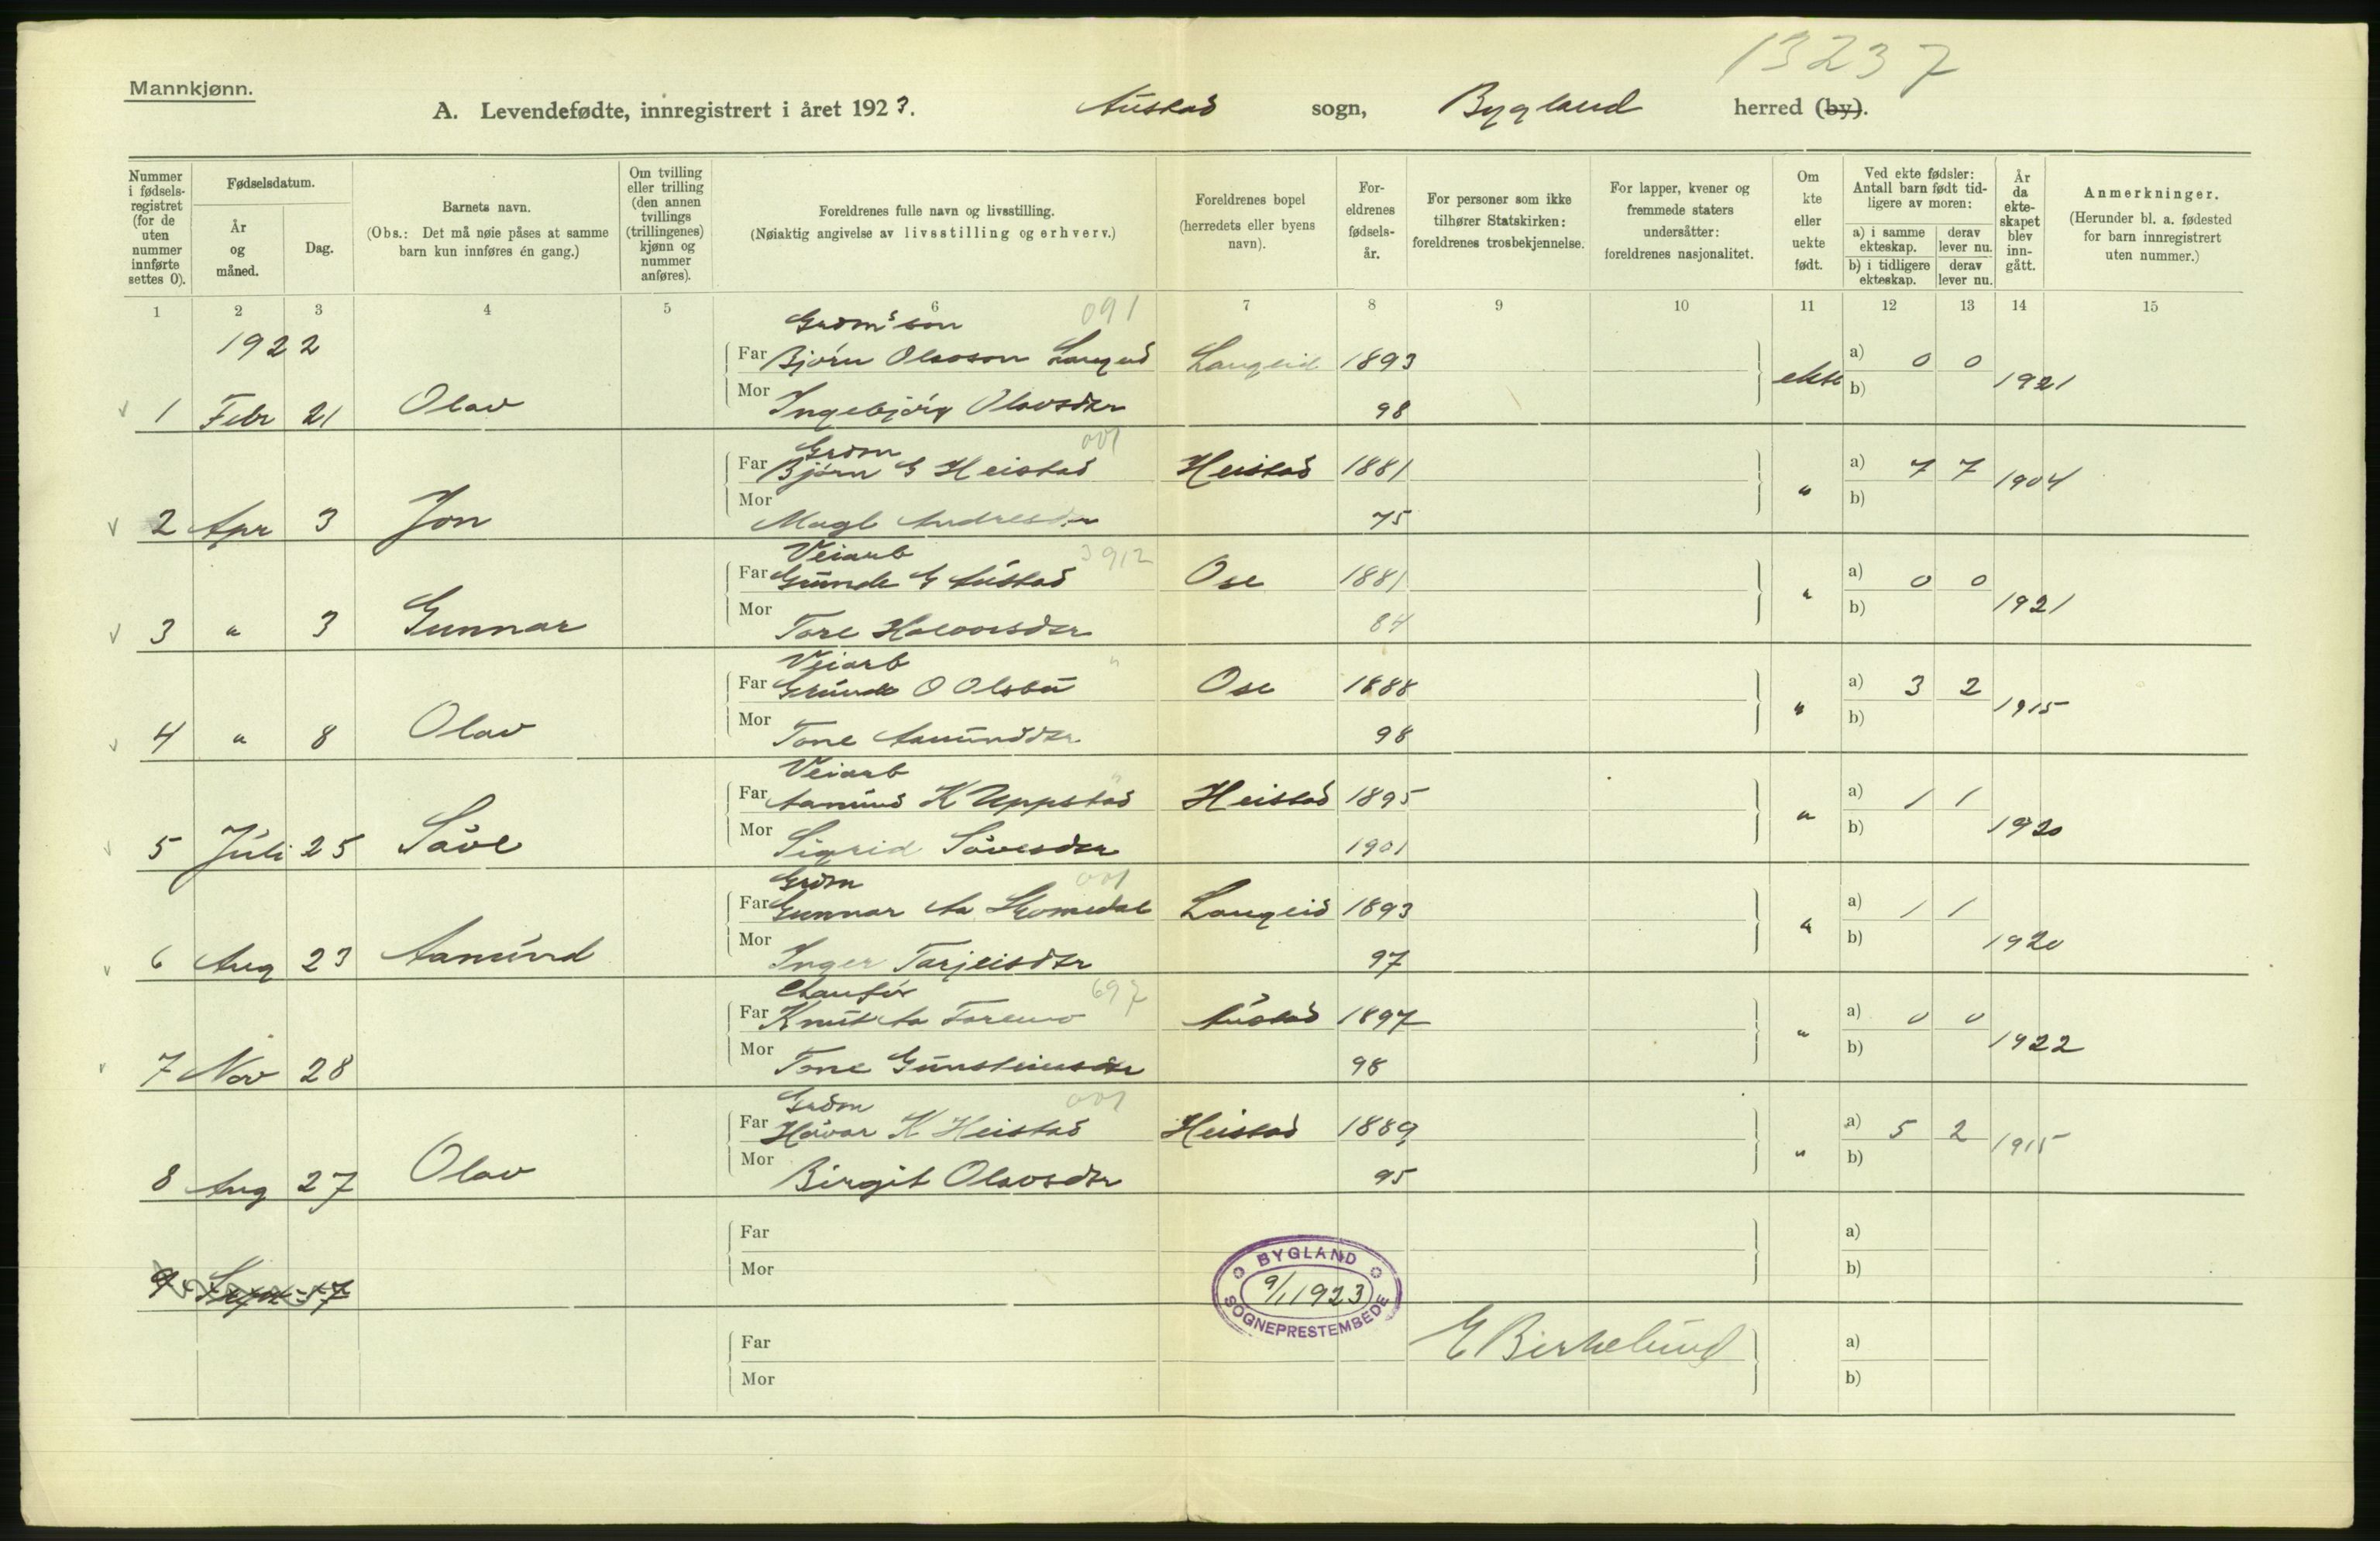 13237
Mannkjønn.
A. Levendefødte, innregistrert i året 1923. Austad sogn, Bygland herred (by).
Nummer i fødsels-registret (for de uten nummer innførte settes 0).
Fødselsdatum.
År og måned.
Dag.
Barnets navn.
(Obs.: Det må nøie påses at samme barn kun innføres én gang.)
Om tvilling eller trilling (den annen tvillings (trillingenes) kjønn og nummer anføres).
Foreldrenes fulle navn og livsstilling.
(Nøiaktig angivelse av livsstilling og erhverv.)
Foreldrenes bopel (herredets eller byens navn).
For-eldrenes fødsels-år.
For personer som ikke tilhører Statskirken: foreldrenes trosbekjennelse.
For lapper, kvener og fremmede staters undersåtter: foreldrenes nasjonalitet.
Om kte eller uekte født.
Ved ekte fødsler: Antall barn født tid-ligere av moren:
a) i samme ekteskap. derav lever nu.
b) i tidligere ekteskap. derav lever nu.
År da ekte-skapet blev inn-gått.
Anmerkninger.
(Herunder bl. a. fødested for barn innregistrert uten nummer.)
1 2 3 4 5 6 7 8 9 10 11 12 13 14 15
1922
Grdm's søn 091
Far Bjørn Olavson Langeid Langeid 1893 a) 0 0
1 Febr 21 Olav Mor Ingebjørg Olavsdtr 98 ekte b) 1921
Grdm 001
Far Bjørn G Heistad Heistad 1881 a) 7 7 1904
2 Apr 3 Jon Mor Magl Andresdtr 75 " b)
Veiarb 3912
Far Gunde G Austad Ose 1881 a) 0 0
3 " 3 Gunnar Mor Tore Halvorsdtr 84 " b) 1921
Veiarb "
Far Grunde O Olsbu Ose 1888 a) 3 2 1915
4 " 8 Olav Mor Tone Aamundsdtr 98 " b)
Veiarb "
Far Aamund K Uppstad Heistad 1895 a) 1 1
5 Juli 25 Såve Mor Sigrid Såvesdtr 1901 " b) 1920
Grdm 001
Far Gunnar Aa Skomedal Langeid 1893 a) 1 1
6 Aug 23 Aamund Mor Inger Tarjeisdtr 97 " b) 1920
Chaufør 697
Far Knut Aa Austad 1897 a) 0 0
7 Nov 28 Mor Tone Gunsteinsdtr 98 " b) 1922
Grdm 001
Far Håvar K Heistad Heistad 1889 a) 5 2 1915
8 Aug 27 Olav Mor Birgit Olavsdtr 95 " b)
Far a)
9 Sept 17 Mor b)
BYGLAND
9/1 1923
SOGNEPRESTEMBEDE
E Birkelund
Far a)
Mor b)